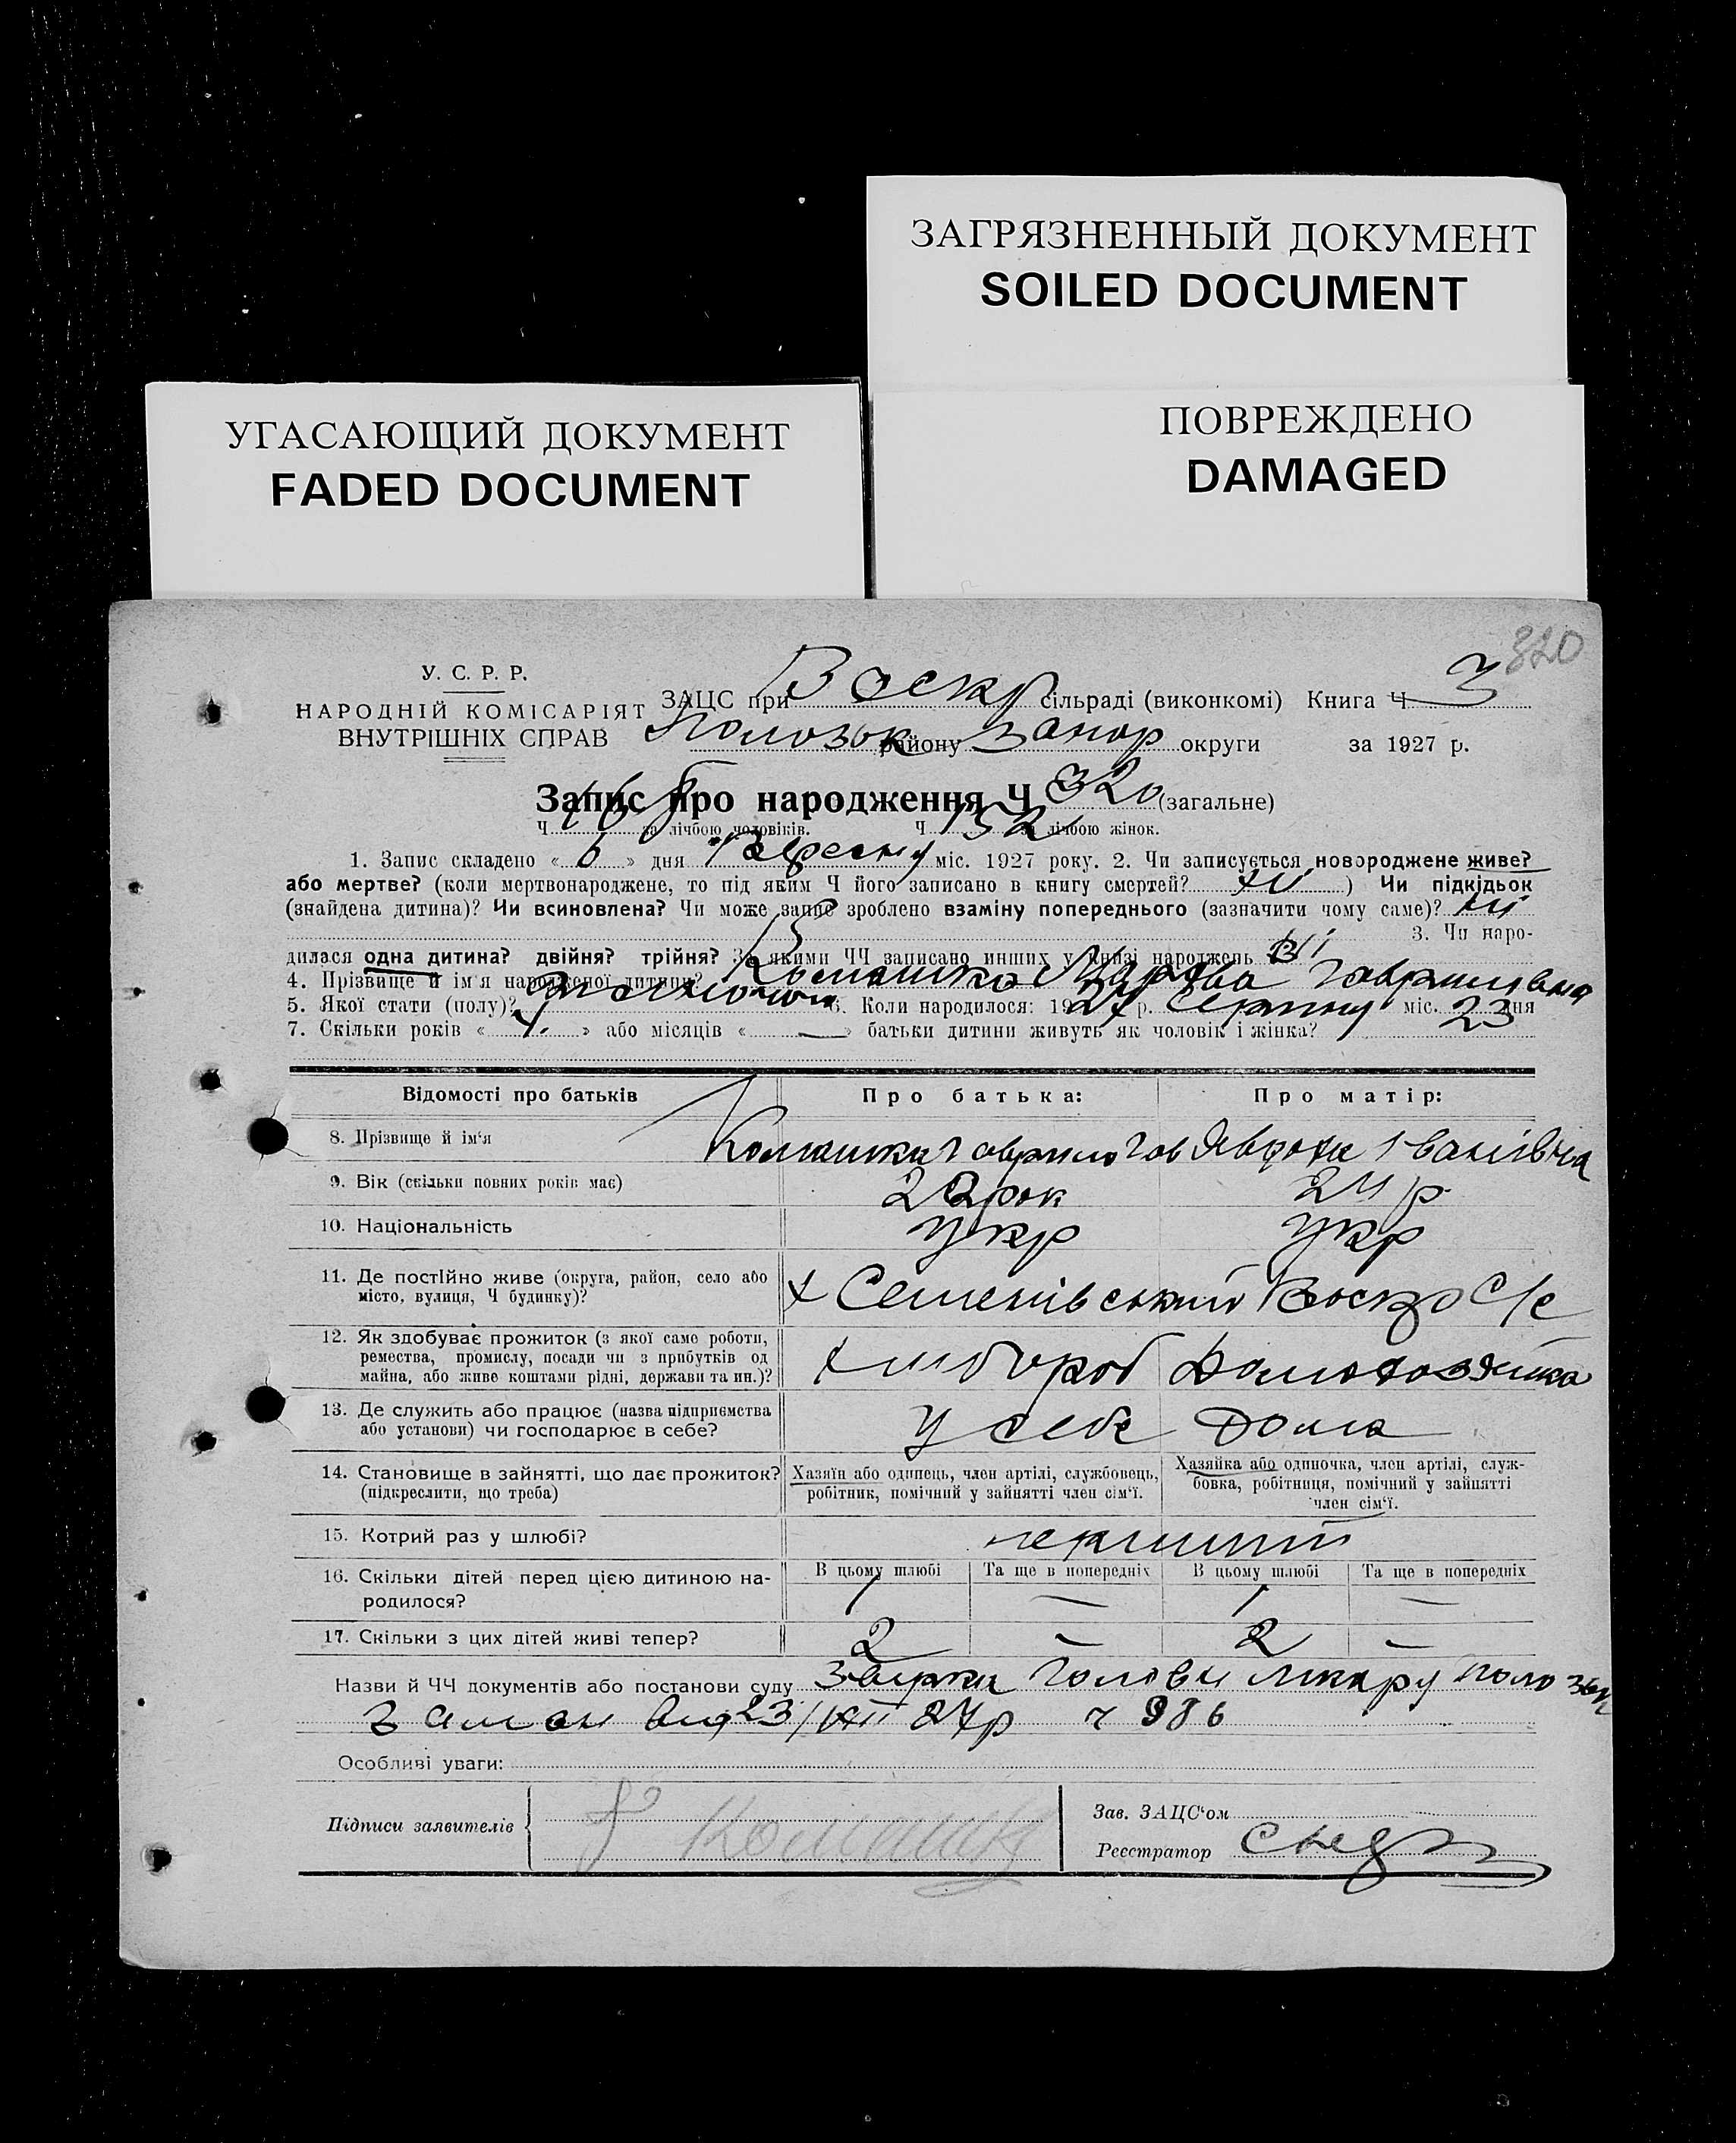 ЗАГРЯЗНЕННЫЙ ДОКУМЕНТ
SOILED DOCUMENT
УГАСАЮЩИЙ ДОКУМЕНТ
FADED DOCUMENT
ПОВРЕЖДЕНО
DAMAGED
320
У. С. Р. Р.
НАРОДНІЙ КОМІСАРІЯТ
ВНУТРІШНІХ СПРАВ
ЗАЦС при Воскр сільраді (виконкомі) Книга Ч 3
Полозьк району Запор округи за 1927 р.
Запис про народження Ч 320 (загальне)
Ч 168 за лічбою чоловіків. Ч 152 за лічбою жінок.
1. Запис складено « 6 » дня Вересня міс. 1927 року. 2. Чи записується новороджене живе?
або мертве? (коли мертвонароджене, то під яким Ч його записано в книгу смертей? ні ) Чи підкідьок
(знайдена дитина)? Чи всиновлена? Чи може запис зроблено взаміну попереднього (зазначити чому саме)? ні
3. Чи наро-
дилася одна дитина? двійня? трійня? За якими ЧЧ записано инших у книзі народжень ні
4. Прізвище й ім'я народженої дитини? Гаврилівна
5. Якої стати (полу)? 6. Коли народилося: 1927 р. Серпня міс. 23 дня
7. Скільки років « 4. » або місяців « — » батьки дитини живуть як чоловік і жінка?
Відомості про батьків Про батька: Про матір:
8. Прізвище й ім'я Іванівна
9. Вік (скільки повних років має) 22 рок 24 р
10. Національність укр укр
11. Де постійно живе (округа, район, село або
місто, вулиця, Ч будинку)? х Семенівський Воскр С/с
12. Як здобуває прожиток (з якої саме роботи,
ремества, промислу, посади чи з прибутків од
майна, або живе коштами рідні, держави та ин.)? хлібороб Домохозяйка
13. Де служить або працює (назва підприємства
або установи) чи господарює в себе? у себе Дома
14. Становище в зайнятті, що дає прожиток?
(підкреслити, що треба)
Хазяїн або одинець, член артілі, службовець,
робітник, помічний у зайнятті член сім'ї.
Хазяйка або одиночка, член артілі, служ-
бовка, робітниця, помічний у зайнятті
член сім'ї.
15. Котрий раз у шлюбі? перший
16. Скільки дітей перед цією дитиною на-
родилося?
В цьому шлюбі Та ще в попередніх В цьому шлюбі Та ще в попередніх
1 — 1 —
17. Скільки з цих дітей живі тепер? 2 — 2 —
Назви й ЧЧ документів або постанови суду
від 23/VIII 27р ч 986
Особливі уваги:
Підписи заявителів
Зав. ЗАЦС'ом
Реєстратор